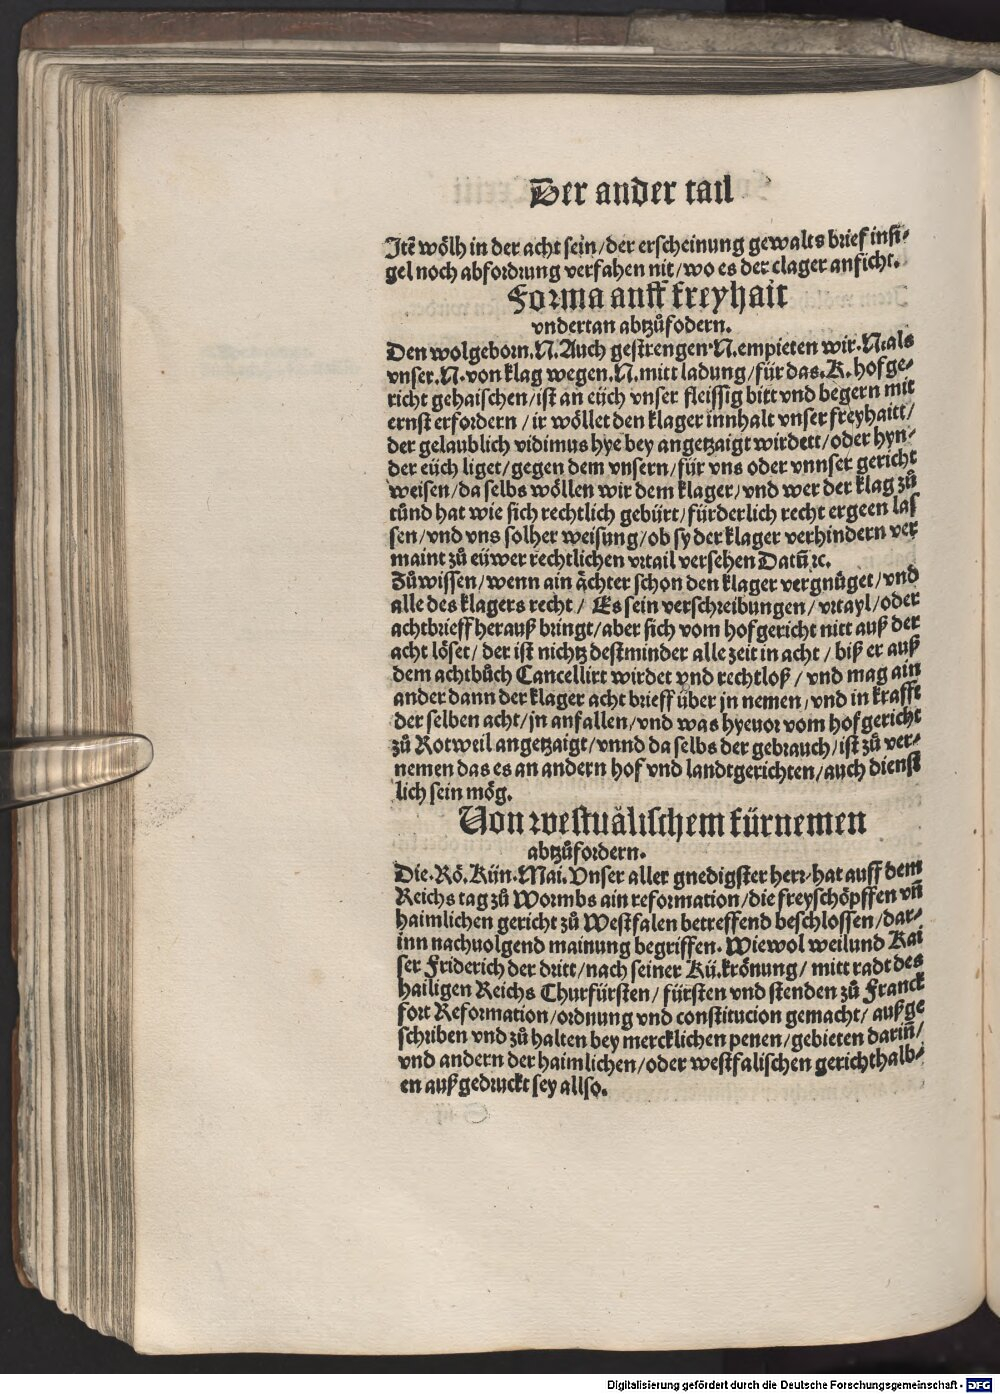 Der ander tail
Itē wölh in der acht sein/der erscheinung gewalts brief insi-
gel noch abfordrung verfahen nit/wo es der clager anficht.
Forma auff freyhait
vndertan abtzůfodern.
Den wolgeborn.N.Auch gestrengen.N.empieten wir.N.als
vnser.N.von klag wegen.N.mitt ladung/für das.K.hofge-
richt gehaischen/ist an eüch vnser fleissig bitt vnd begern mit
ernst erfordern/ir wöllet den klager innhalt vnser freyhaitt/
der gelaublich vidimus hye bey angetzaigt wirdett/oder hyn-
der eüch liget/gegen dem vnsern/für vns oder vnnser gericht
weisen/da selbs wöllen wir dem klager/vnd wer der klag zů
tůnd hat wie sich rechtlich gebürt/fürderlich recht ergeen las
sen/vnd vns solher weisung/ob sy der klager verhindern ver
maint zů eüwer rechtlichen vrtail versehen Datū ⁊c.
Zůwissen/wenn ain ächter schon den klager vergnüget/vnd
alle des klagers recht/ Es sein verschreibungen/vrtayl/oder
achtbrieff herauß bringt/aber sich vom hofgericht nitt auß der
acht löset/der ist nichtz destminder alle zeit in acht/biß er auß
dem achtbůch Cancellirt wirdet vnd rechtloß/vnd mag ain
ander dann der klager acht brieff über jn nemen/vnd in krafft
der selben acht/jn anfallen/vnd was hyeuor vom hofgericht
zů Rotweil angetzaigt/vnnd da selbs der gebrauch/ist zů ver-
nemen das es an andern hof vnd landtgerichten/auch dienst
lich sein mög.
Von westuälischem fürnemen
abtzůfordern.
Die.Rö.Kün.Mai.Vnser aller gnedigster herr/hat auff dem
Reichs tag zů Wormbs ain reformation/die freyschöpffen vn̄
haimlichen gericht zů Westfalen betreffend beschlossen/dar-
inn nachuolgend mainung begriffen. Wiewol weilund Kai
ser Friderich der dritt/nach seiner Kü.krönung/mitt radt des
hailigen Reichs Churfürsten/fürsten vnd stenden zů Franck
fort Reformation/ordnung vnd constitucion gemacht/außge
schriben vnd zů halten bey mercklichen penen/gebieten darin̄/
vnd andern der haimlichen/oder westfalischen gerichthalb-
en auß gedruckt sey allso.
Digitalisierung gefördert durch die Deutsche Forschungsgemeinschaft - DFG